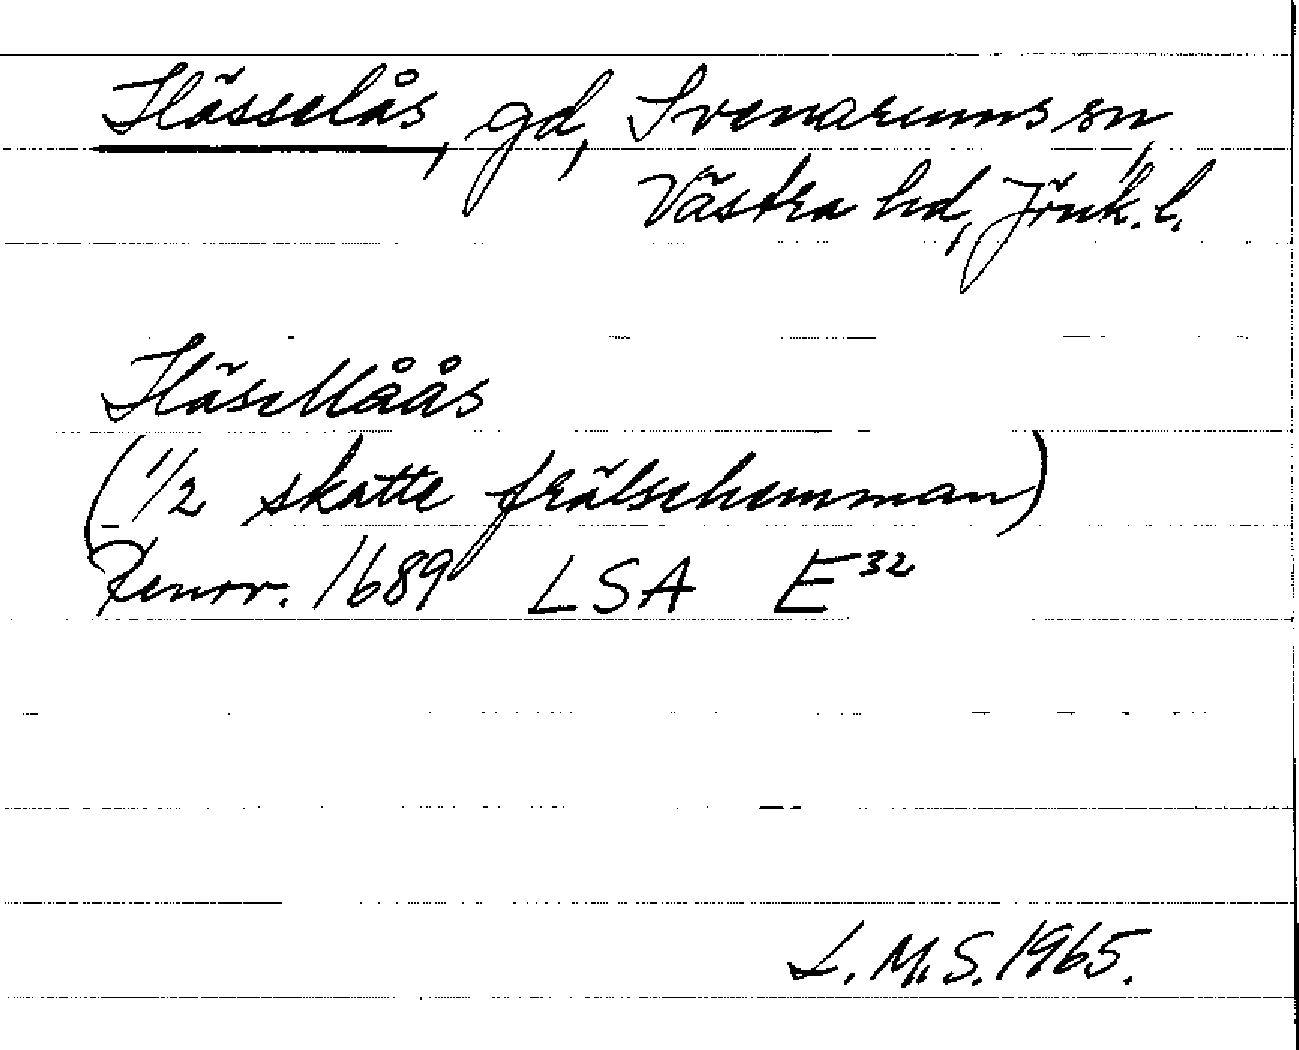 Hässelås, gd, Svenarums sn,
Västra hd, Jönk. l.
Häsellåås
(1/2 skatte frälsehemman)
Renov. 1689 LSA E32
L. M. S. 1965.